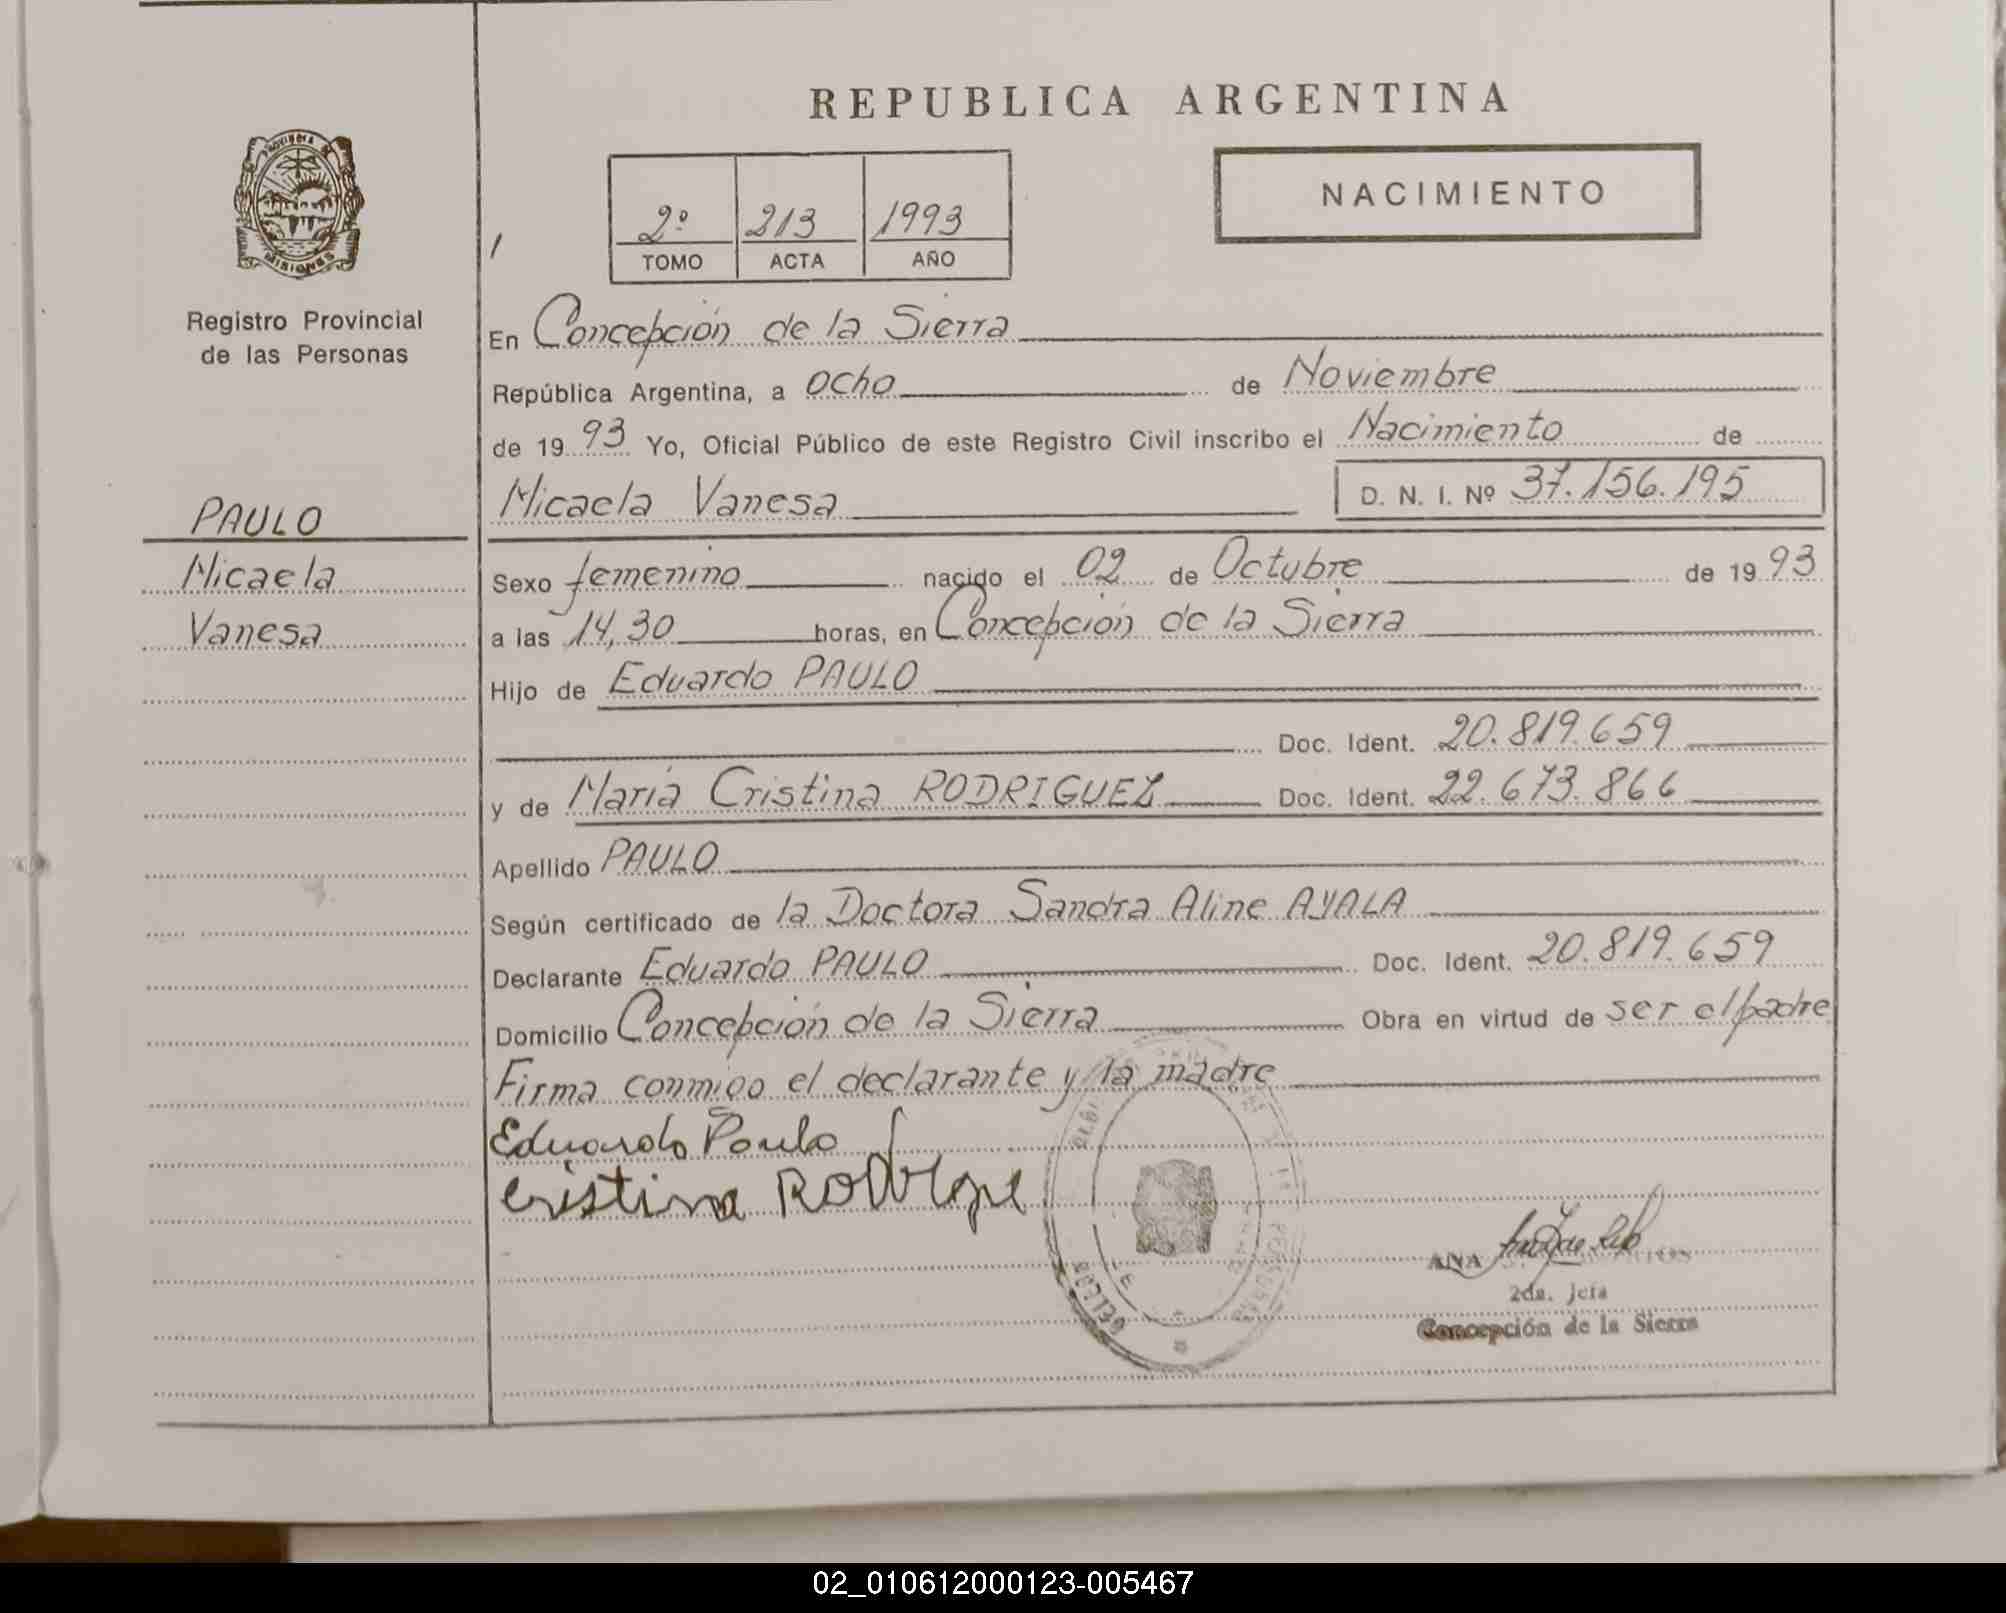 REPUBLICA ARGENTINA
PROVINCIA DE
MISIONES
Registro Provincial
de las Personas
NACIMIENTO
2º 213 1993
TOMO ACTA AÑO
En Concepción de la Sierra
República Argentina, a ocho de Noviembre
de 1993 Yo, Oficial Público de este Registro Civil inscribo el Nacimiento de
Micaela Vanesa D. N. I. Nº 37.156.195
PAULO
Micaela
Vanesa
Sexo femenino nacido el 02 de Octubre de 1993
a las 14,30 horas, en Concepción de la Sierra
Hijo de Eduardo PAULO
Doc. Ident. 20.819.659
y de María Cristina RODRIGUEZ Doc. Ident. 22.673.866
Apellido PAULO
Según certificado de la Doctora Sandra Aline AYALA
Declarante Eduardo PAULO Doc. Ident. 20.819.659
Domicilio Concepción de la Sierra Obra en virtud de ser el padre
Firma conmigo el declarante y la madre
Eduardo Paulo
Cristina
ANA
2da. Jefa
Concepción de la Sierra
02_010612000123-005467